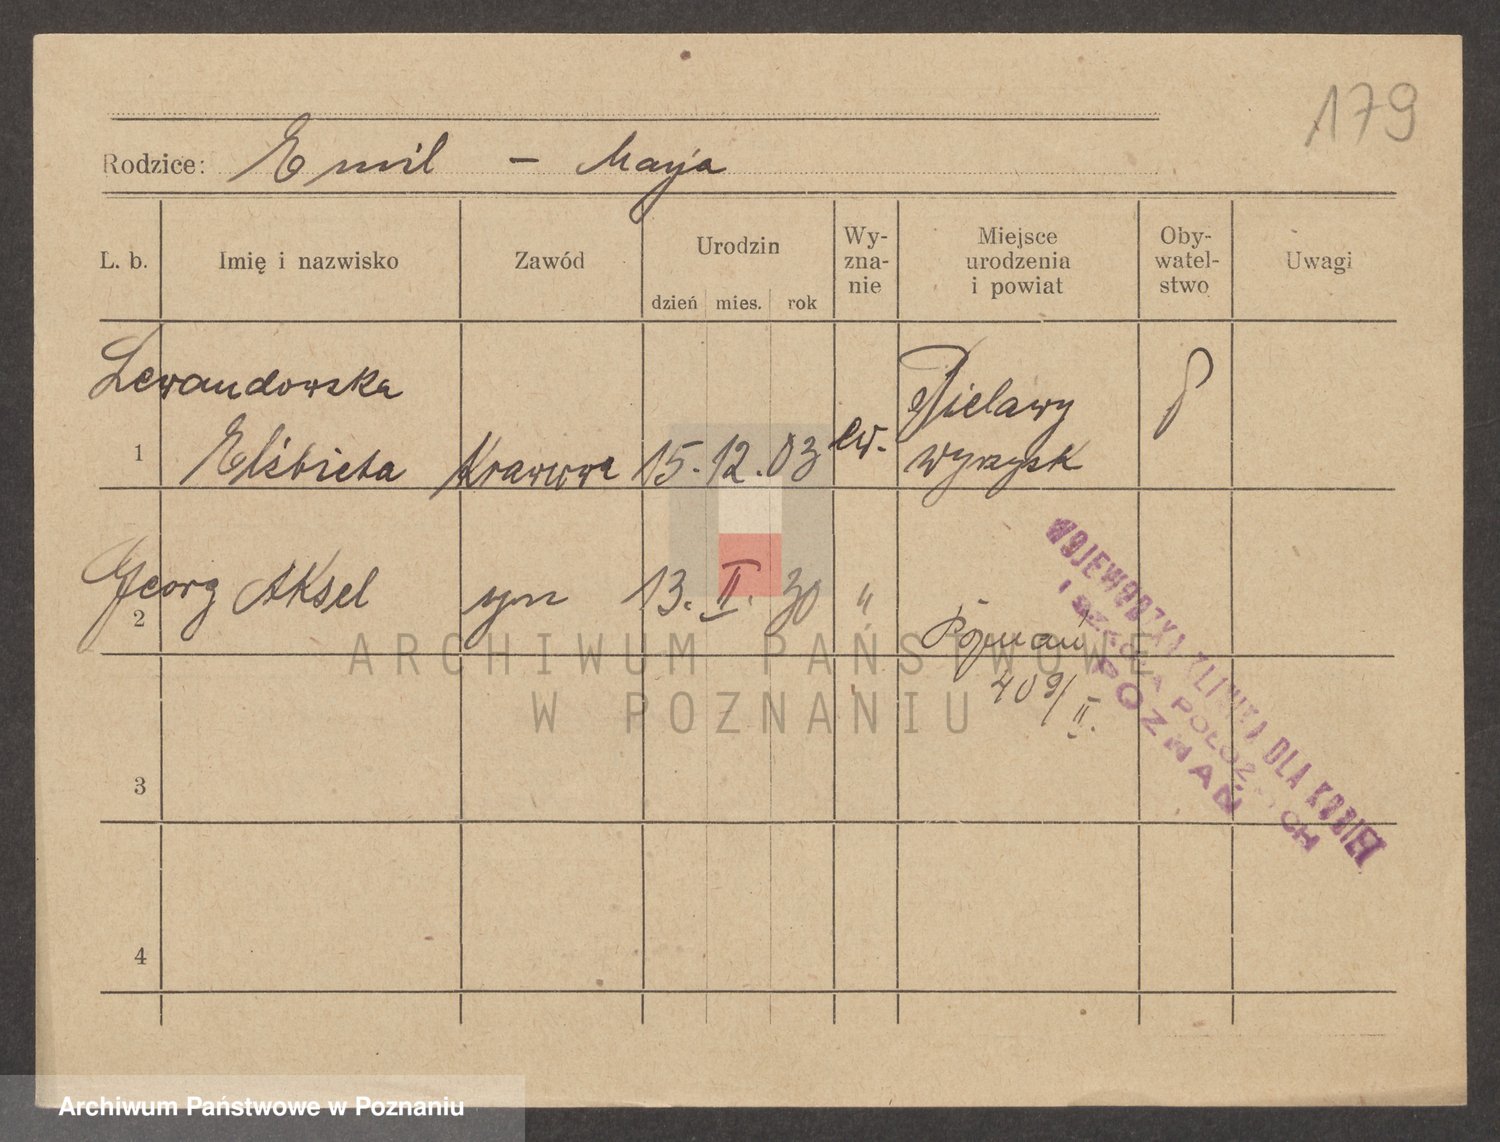 179
Rodzice: Emil - Marja
L. b. Imię i nazwisko Zawód Urodzin Wy- zna- nie Miejsce urodzenia i powiat Oby- watel- stwo Uwagi
dzień mies. rok
Lewandowska
1 Elżbieta Krawcowa 15. 12. 03 ew. Bielawy Wyrzysk P
2 Georg Aksel syn 13. II. 30 " Poznań
409/II.
3
4
WOJEWÓDZKA KLINIKA DLA KOBIET
I SZKOŁA POŁOŻNYCH
POZNAŃ
ARCHIWUM PAŃSTWOWE
W POZNANIU
Archiwum Państwowe w Poznaniu